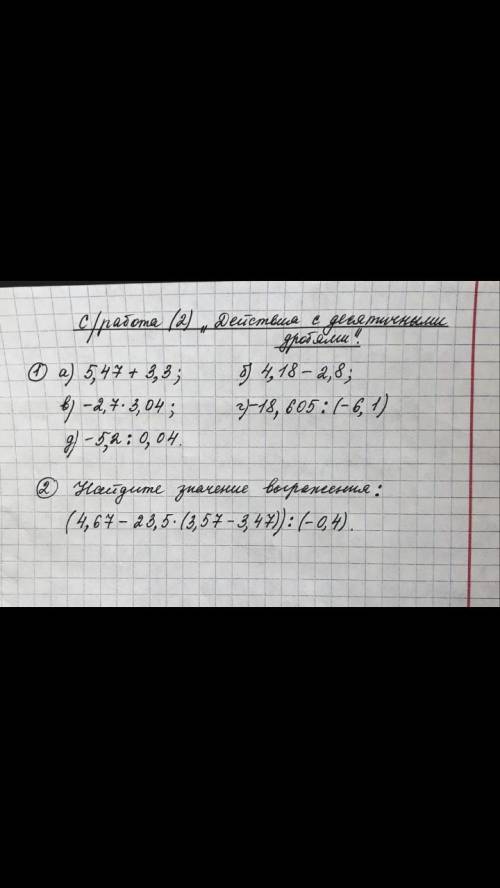 С/работа (2) „Действия с десятичными
дробями".
① а) 5,47 + 3,3; б) 4,18 - 2,8;
в) -2,7 · 3,04; г) -18,605 : (-6,1)
д) -5,2 : 0,04.
② Найдите значение выражения:
(4,67 - 23,5 · (3,57 - 3,47)) : (-0,4).